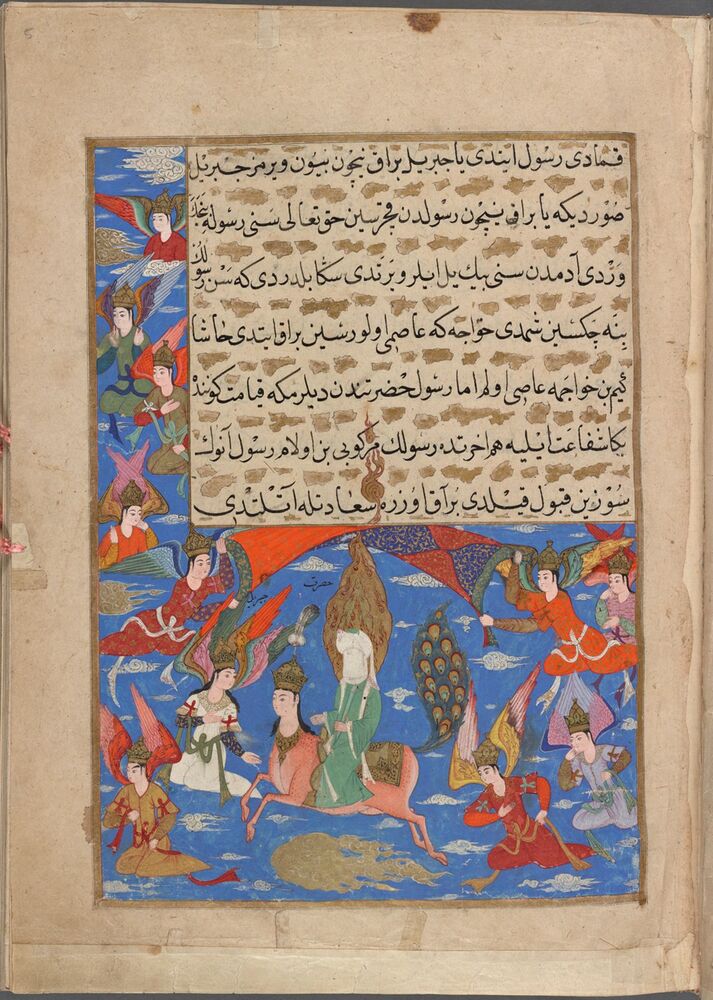 قمادی رسول ایتدی یا جبریل براق نیچون بیون ویرمز جبریل
صوردیکه یا براق نیچون رسولدن قجرسین حق تعالی سنی رسوله
وردی آدمدن سنی بیك یل ایلرو یرتدی سکا بلدردی که سن رسول
ینه چکسین شمدی خواجه که عاصی اولورسین براق ایتدی حاشا
کیم بن خواجمه عاصی اولم اما رسول حضرتندن دیلرمکه قیامت کوننده
بکا شفاعت ایلیه هم اخرتده رسولك مرکوبی بن اولام رسول آنوك
سوزین قبول قیلدی براق اوزره سعادتله آتلندی
حضرت
جبریل
5